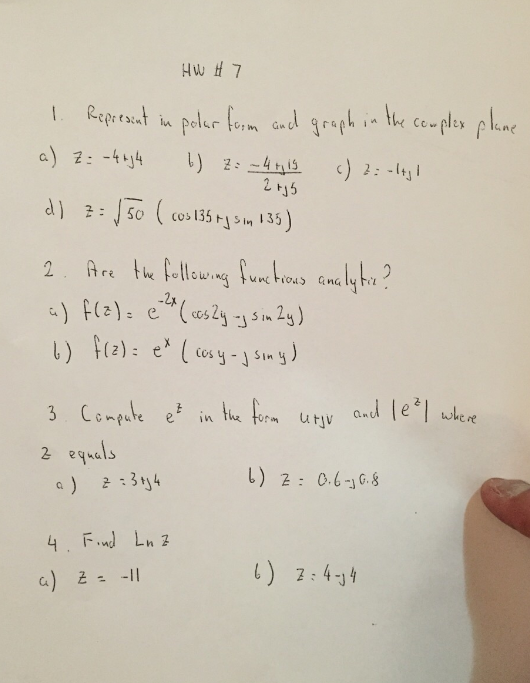 HW # 7
1. Represent in polar form and graph in the complex plane
a) z = -4+j4 b) z = (-4+j15)/(2+j5) c) z = -1+j1
d) z = √50 (cos135+j sin 135)
2. Are the following functions analytic?
a) f(z) = e^-2x (cos2y - j sin2y)
b) f(z) = e^x (cosy - j siny)
3 Compute e^z in the form u+jv and |e^z| where
z equals
a) z = 3+j4 b) z = 0.6-j0.8
4. Find Ln z
a) z = -11 b) z = 4-j4